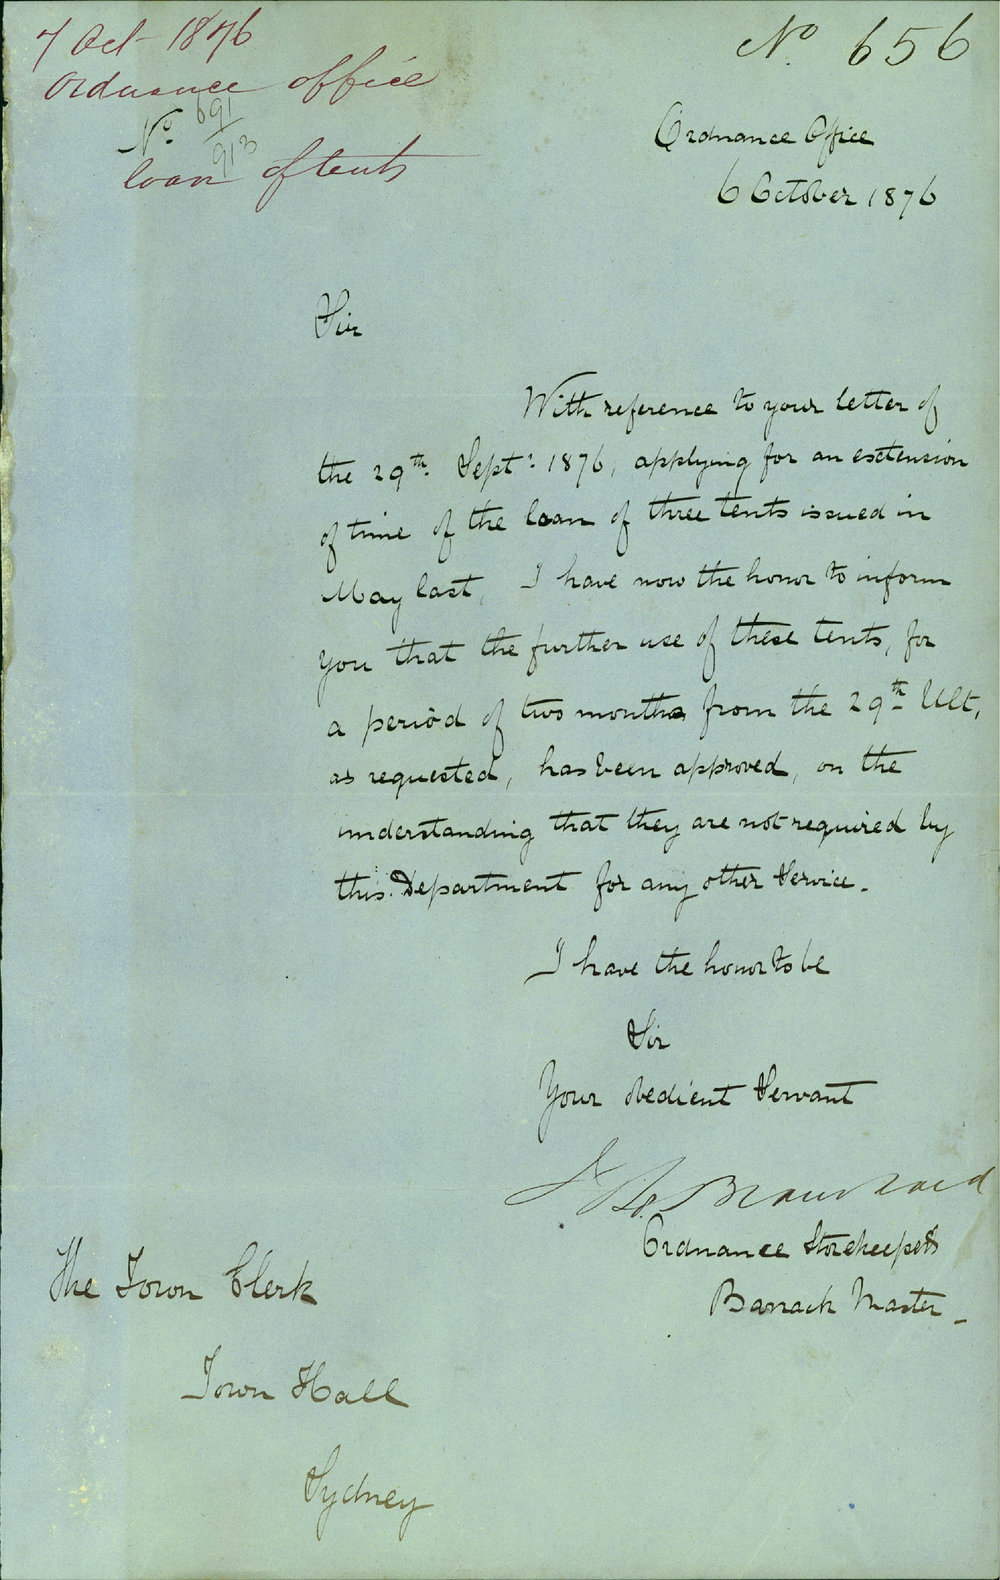 7 Oct 1876
Ordnance office
No 691/913
loan of tents
No. 656
Ordnance Office
6 October 1876
Sir
With reference to your letter of
the 29th. Sept: 1876, applying for an extension
of time of the loan of three tents issued in
May last, I have now the honor to inform
you that the further use of these tents, for
a period of two months from the 29th Ult,
as requested, has been approved, on the
understanding that they are not required by
this Department for any other Service.
I have the honor to be
Sir
Your obedient Servant
Ordnance Storekeeper &
Barrack Master
The Town Clerk
Town Hall
Sydney